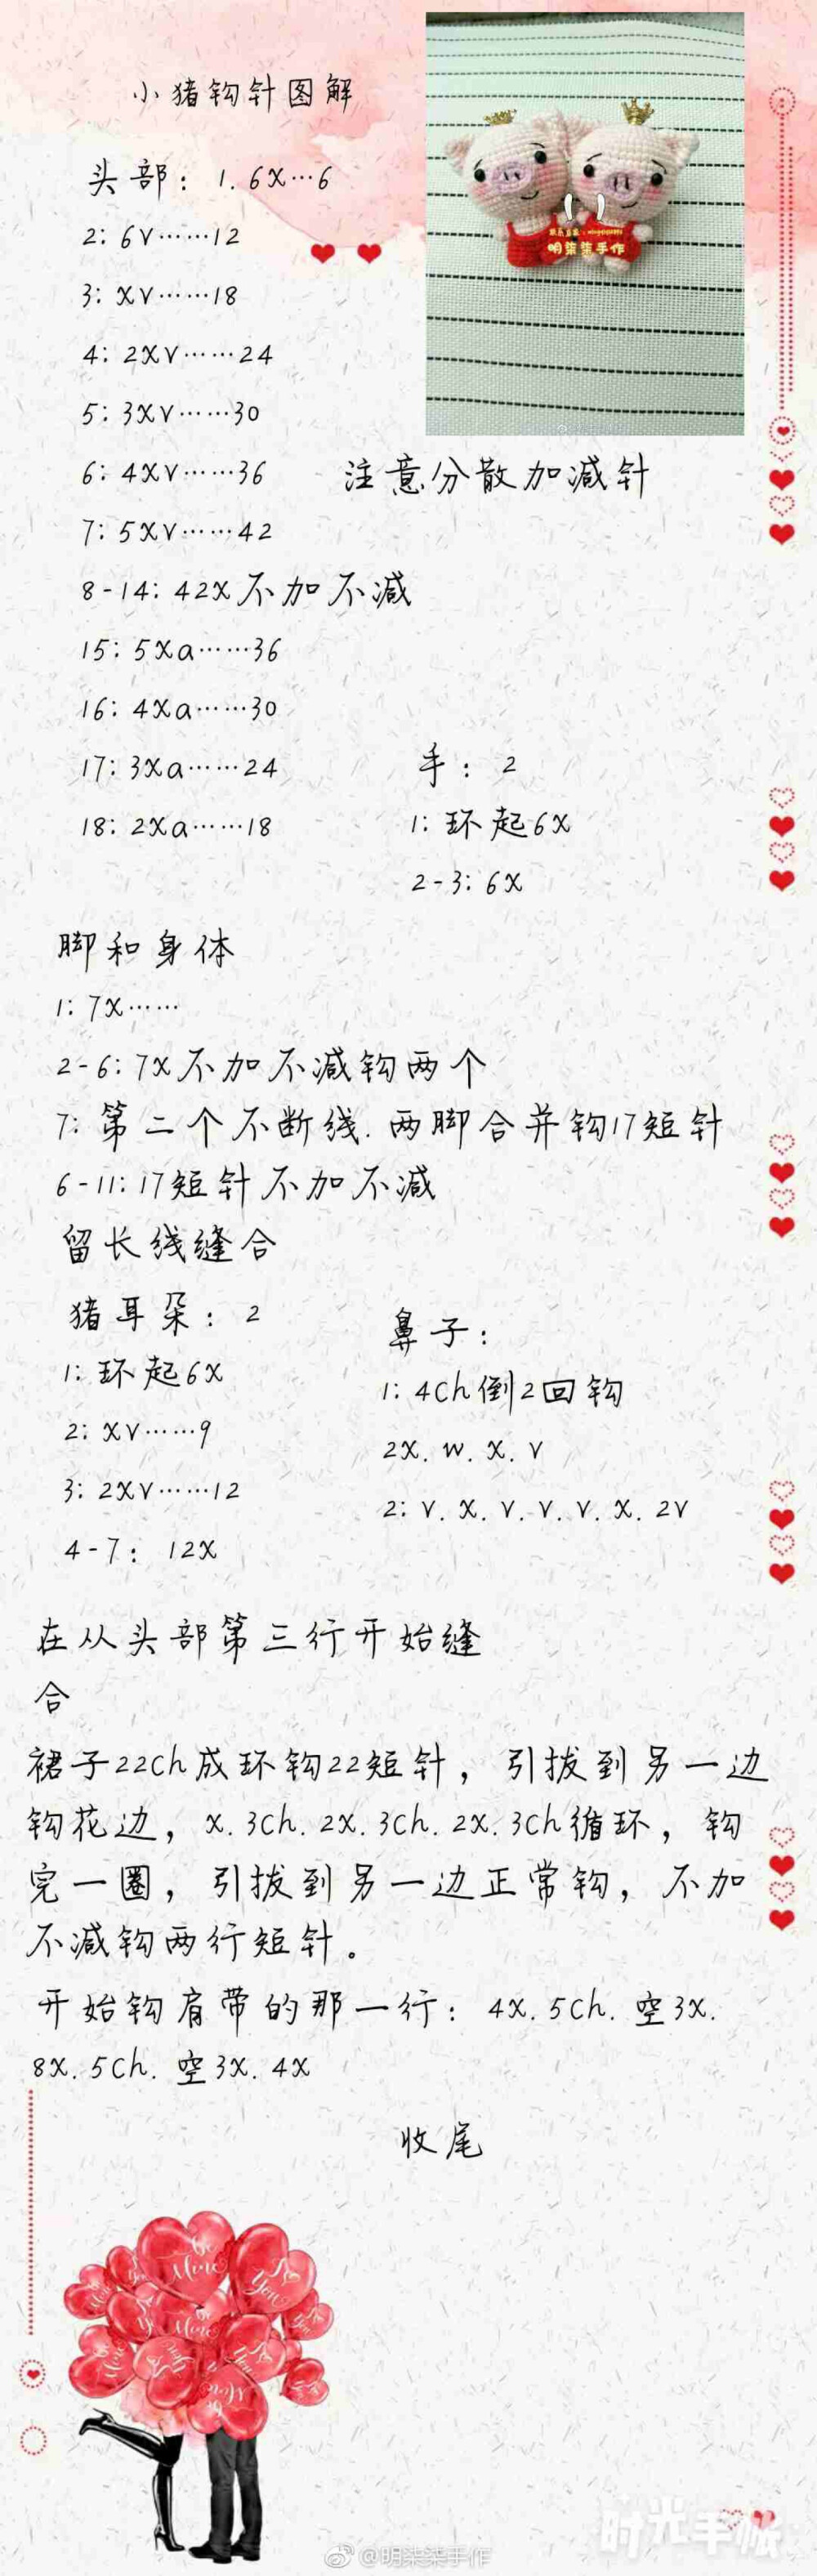 小猪钩针图解
头部：1. 6X…6
2: 6V……12
3: XV……18
4: 2XV……24
5: 3XV……30
6: 4XV……36
注意分散加减针
7: 5XV……42
8-14: 42X不加不减
15: 5Xa……36
16: 4Xa……30
17: 3Xa……24
18: 2Xa……18
手：2
1: 环起6X
2-3: 6X
脚和身体
1: 7X……
2-6: 7X不加不减钩两个
7: 第二个不断线. 两脚合并钩17短针
6-11: 17短针不加不减
留长线缝合
猪耳朵：2
1: 环起6X
2: XV……9
3: 2XV……12
4-7: 12X
鼻子：
1: 4Ch倒2回钩
2X. W. X. V
2: V. X. V. V. V. X. 2V
在从头部第三行开始缝
合
裙子22Ch成环钩22短针，引拔到另一边
钩花边，X. 3Ch. 2X. 3Ch. 2X. 3Ch循环，钩
完一圈，引拔到另一边正常钩，不加
不减钩两行短针。
开始钩肩带的那一行：4X. 5Ch. 空3X.
8X. 5Ch. 空3X. 4X
收尾
明柒柒手作
Be
Mine
I
You
时光手帐
@明柒柒手作